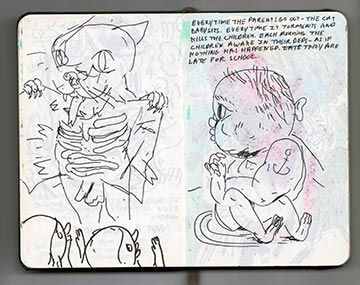 EVERYTIME THE PARENTS GO OUT - THE CAT
BABYSITS. EVERYTIME IT TORMENTS AND
KILLS THE CHILDREN. EACH MORNING THE
CHILDREN AWAKE IN THEIR BEDS, AS IF
NOTHING HAS HAPPENED. THEY ARE
LATE FOR SCHOOL.